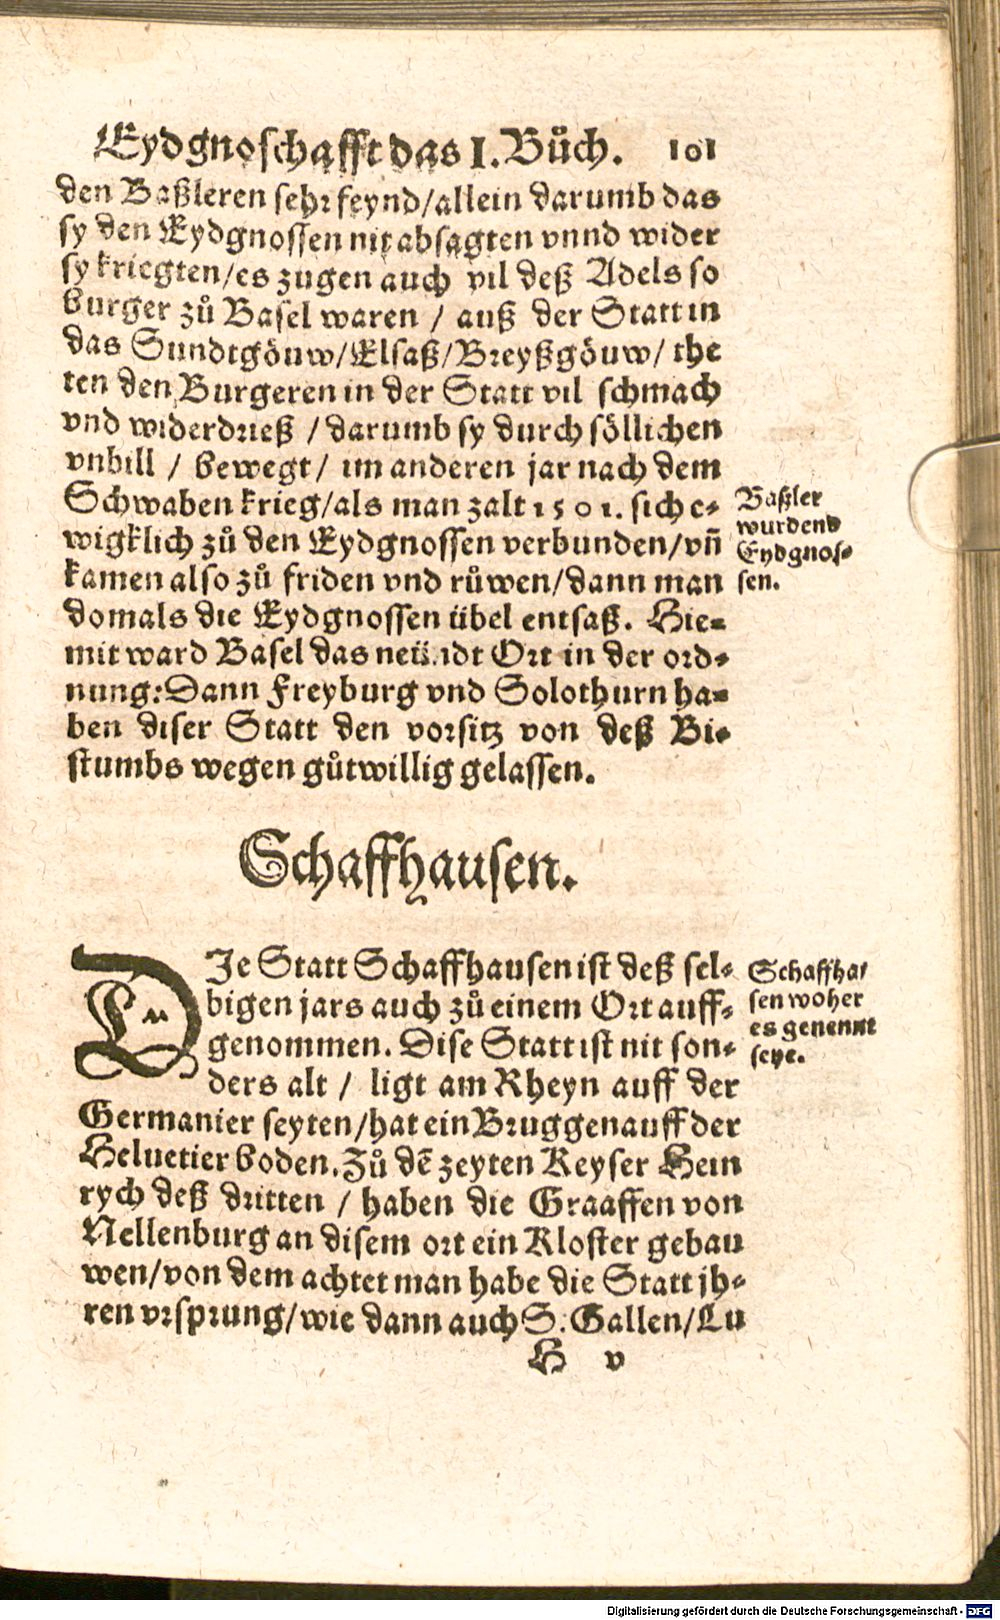 Eydgnoschafft das I. Bůch. 101
den Baßleren sehr feynd/allein darumb das
sy den Eydgnossen nit absagten vnnd wider
sy kriegten/es zugen auch vil deß Adels so
burger zů Basel waren / auß der Statt in
das Sundtgöuw/Elsaß/Breyßgöuw/ the
ten den Burgeren in der Statt vil schmach
vnd widerdrieß / darumb sy durch söllichen
vnbill / bewegt/ im anderen jar nach dem
Schwaben krieg/als man zalt 1501. sich e-
wigklich zů den Eydgnossen verbunden/vñ
kamen also zů friden vnd růwen/dann man
domals die Eydgnossen übel entsaß. Hie-
mit ward Basel das neündt Ort in der ord-
nung: Dann Freyburg vnd Solothurn ha-
ben diser Statt den vorsitz von deß Bi-
stumbs wegen gůtwillig gelassen.
Baßler
wurdend
Eydgnos-
sen.
Schaffhausen.
DIe Statt Schaffhausen ist deß sel-
bigen jars auch zů einem Ort auff-
genommen. Dise Statt ist nit son-
ders alt / ligt am Rheyn auff der
Germanier seyten/hat ein Bruggen auff der
Heluetier boden. Zů dē zeyten Keyser Hein
rych deß dritten / haben die Graaffen von
Nellenburg an disem ort ein Kloster gebau
wen/von dem achtet man habe die Statt jh-
ren vrsprung/wie dann auch S. Gallen/Lu
Schaffha
sen woher
es genennt
seye.
H v
Digitalisierung gefördert durch die Deutsche Forschungsgemeinschaft - DFG